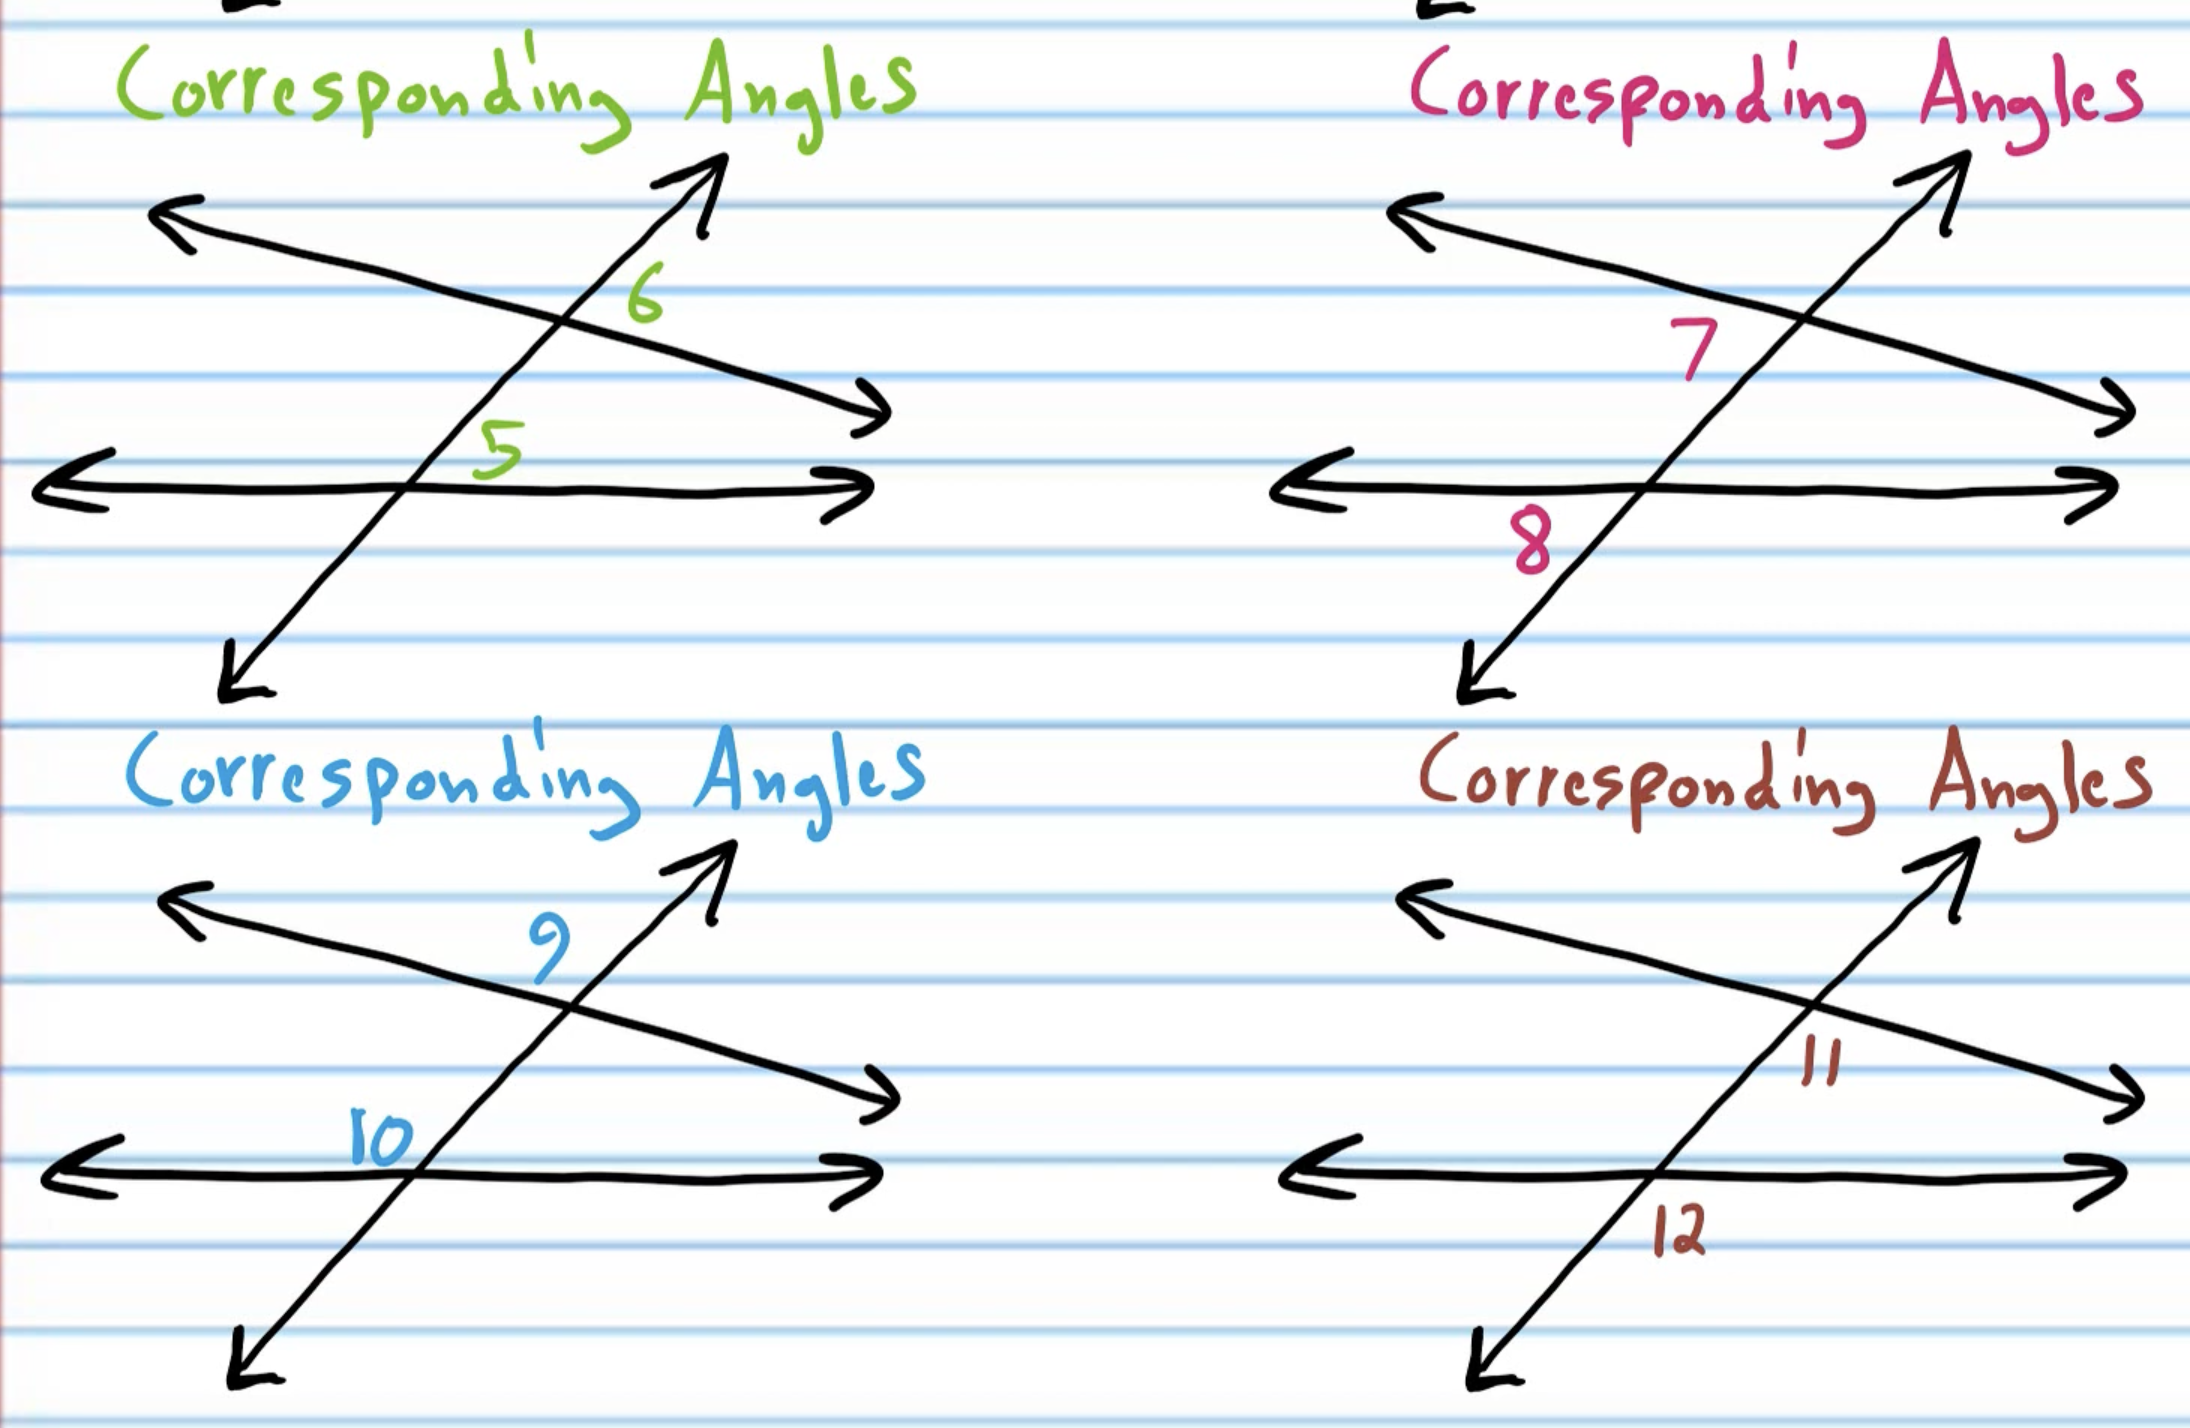 Corresponding Angles
6
5
Corresponding Angles
7
8
Corresponding Angles
9
10
Corresponding Angles
11
12